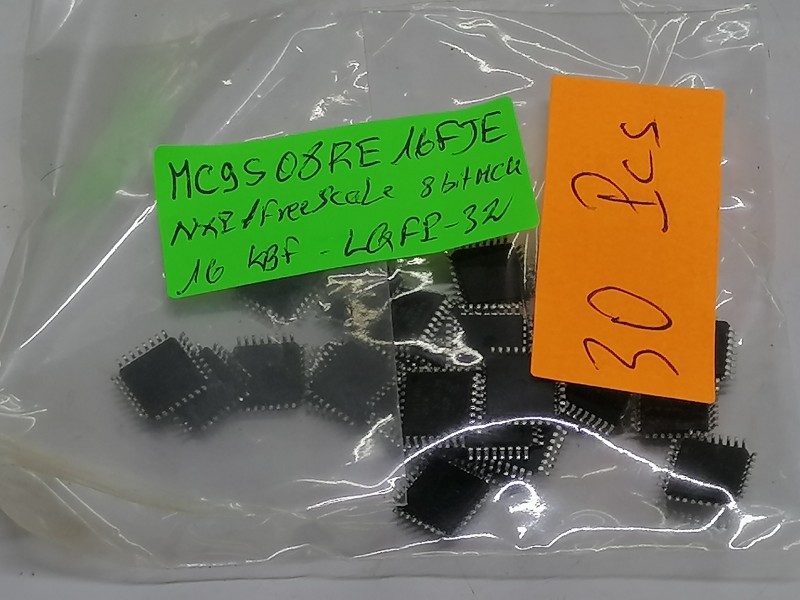 MC9S08RE16FJE
NXP/FreeScale 8bit MCU
16 KBF - LQFP-32
30 Pcs